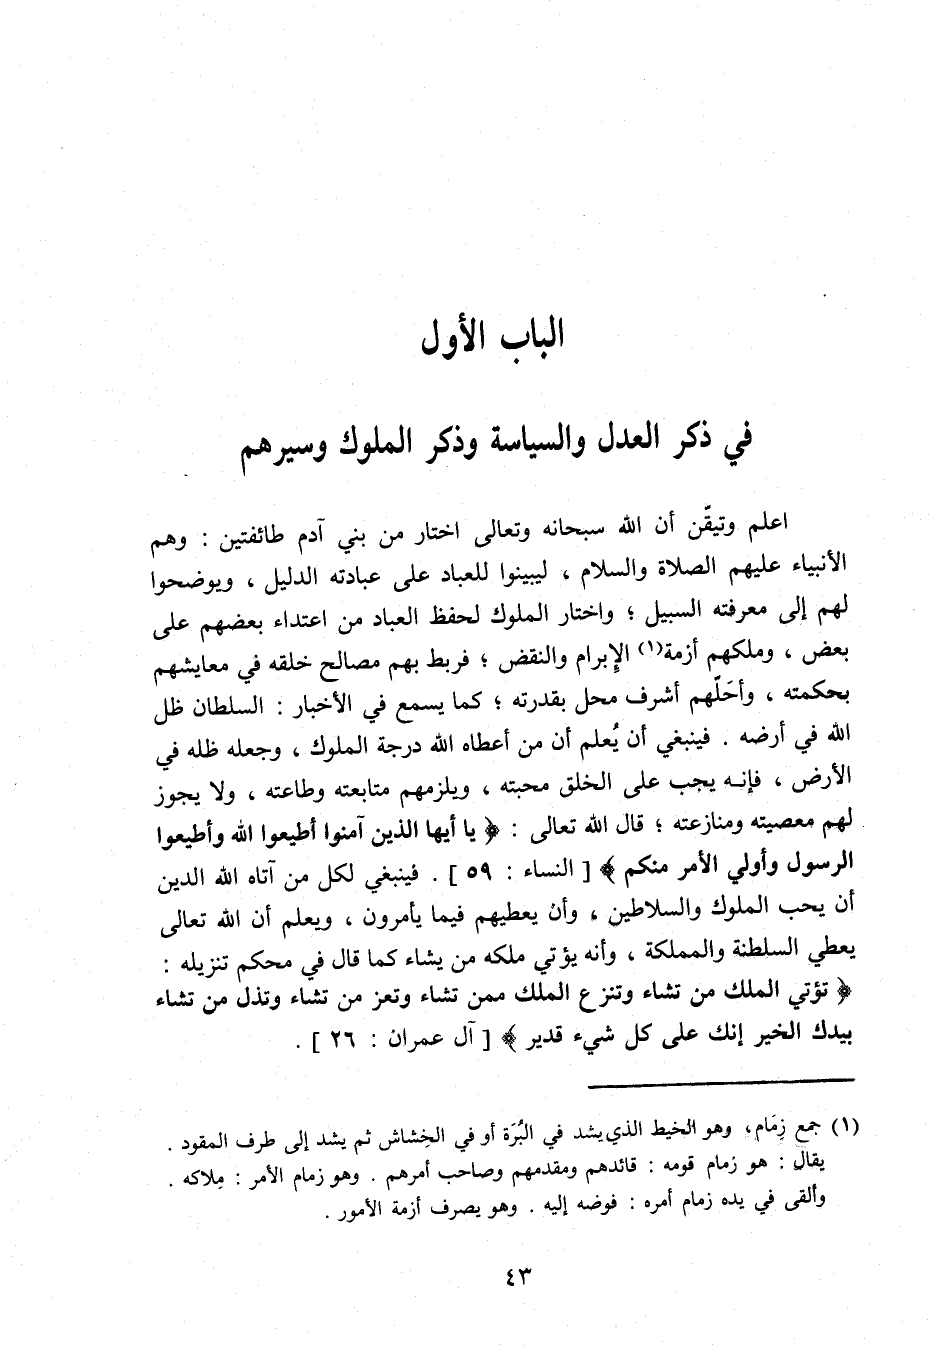 الباب الأول
في ذكر العدل والسياسة وذكر الملوك وسيرهم
اعلم وتيقّن أن الله سبحانه وتعالى اختار من بني آدم طائفتين : وهم
الأنبياء عليهم الصلاة والسلام ، ليبينوا للعباد على عبادته الدليل ، ويوضحوا
لهم إلى معرفته السبيل ؛ واختار الملوك لحفظ العباد من اعتداء بعضهم على
بعض ، وملكهم أزمة(١) الإبرام والنقض ؛ فربط بهم مصالح خلقه في معايشهم
بحكمته ، وأحَلّهم أشرف محل بقدرته ؛ كما يسمع في الأخبار : السلطان ظل
الله في أرضه . فينبغي أن يُعلم أن من أعطاه الله درجة الملوك ، وجعله ظله في
الأرض ، فإنه يجب على الخلق محبته ، ويلزمهم متابعته وطاعته ، ولا يجوز
لهم معصيته ومنازعته ؛ قال الله تعالى : ﴿ يا أيها الذين آمنوا أطيعوا الله وأطيعوا
الرسول وأولي الأمر منكم ﴾ [ النساء : ٥٩ ] . فينبغي لكل من آتاه الله الدين
أن يحب الملوك والسلاطين ، وأن يعطيهم فيما يأمرون ، ويعلم أن الله تعالى
يعطي السلطنة والمملكة ، وأنه يؤتي ملكه من يشاء كما قال في محكم تنزيله :
﴿ تؤتي الملك من تشاء وتنزع الملك ممن تشاء وتعز من تشاء وتذل من تشاء
بيدك الخير إنك على كل شيء قدير ﴾ [ آل عمران : ٢٦ ] .
(١) جمع زِمَام، وهو الخيط الذي يشد في البُرَة أو في الخِشاش ثم يشد إلى طرف المقود .
يقال : هو زمام قومه : قائدهم ومقدمهم وصاحب أمرهم . وهو زمام الأمر : مِلاكه .
وألقى في يده زمام أمره : فوضه إليه . وهو يصرف أزمة الأمور .
٤٣